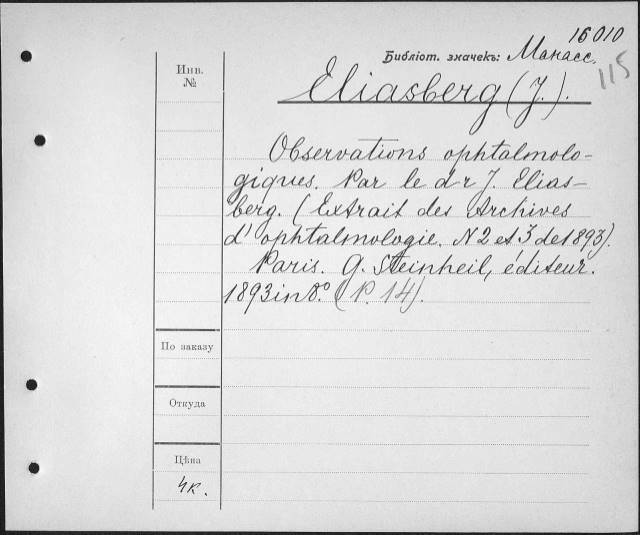 16010
Библiот. значекъ: Манасс.
115
Инв.
№
Eliasberg (J.).
Observations ophtalmolo-
giques. Par le dr J. Elias-
berg. (Extrait des Archives
d'ophtalmologie. N2 et 3 de 1893).
Paris. G. Steinheil, éditeur.
1893 in 8.° (P. 14).
По заказу
Откуда
Цѣна
4к.